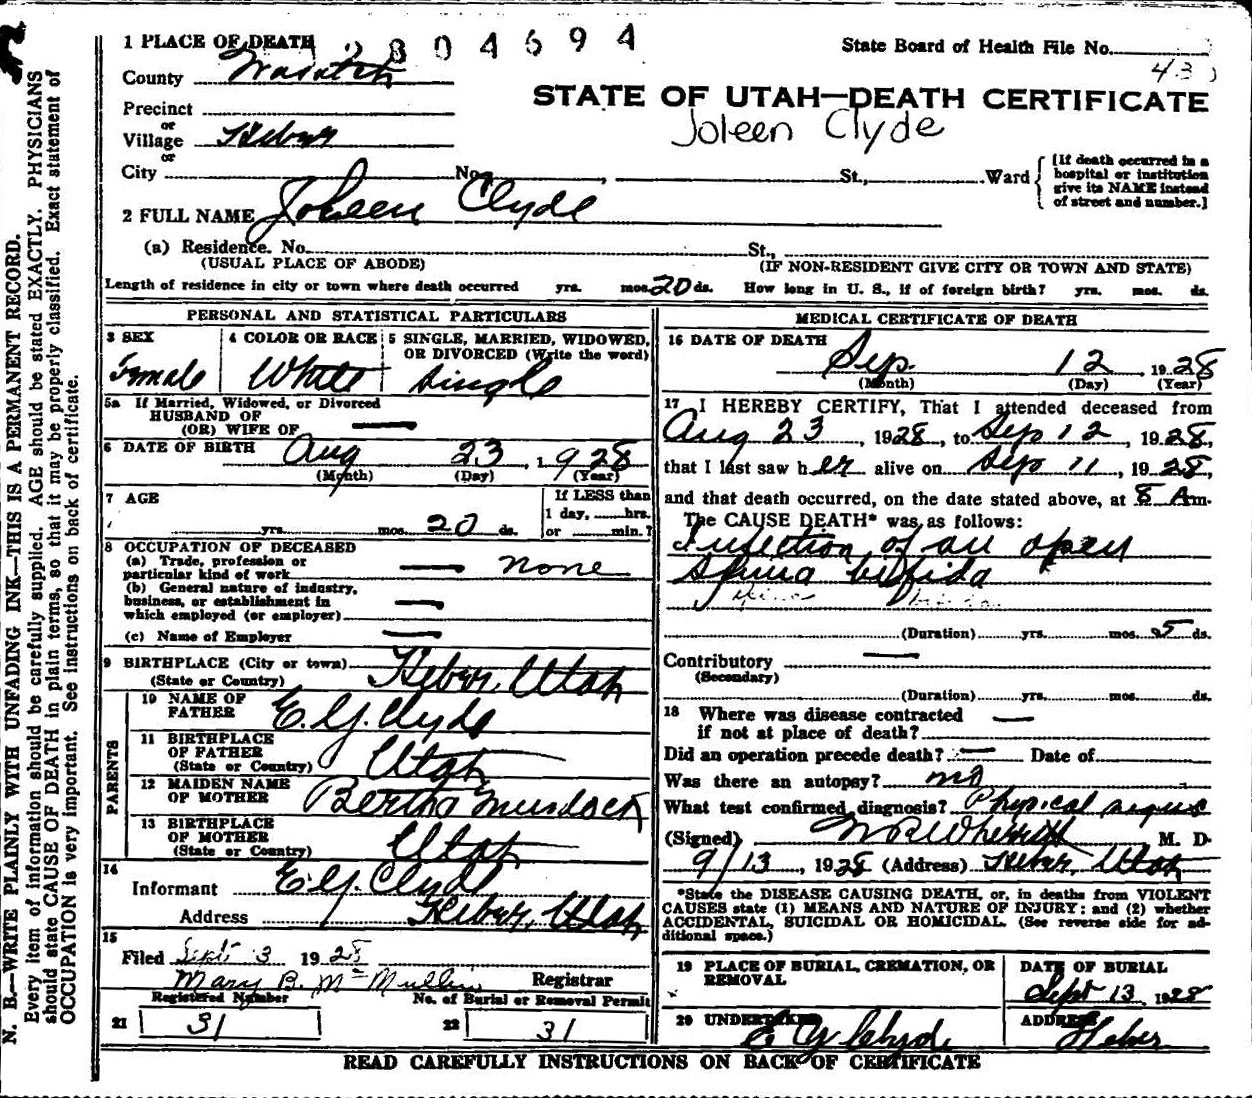 1 PLACE OF DEATH 2804694
State Board of Health File No.
County Wasatch
430
STATE OF UTAH—DEATH CERTIFICATE
Joleen Clyde
Precinct
or
Village Heber
or
City No. , St., Ward
[If death occurred in a
hospital or institution
give its NAME instead
of street and number.]
2 FULL NAME Joleen Clyde
(a) Residence. No. St.,
(USUAL PLACE OF ABODE) (IF NON-RESIDENT GIVE CITY OR TOWN AND STATE)
Length of residence in city or town where death occurred yrs. mos. 20 ds. How long in U. S., if of foreign birth? yrs. mos. ds.
PERSONAL AND STATISTICAL PARTICULARS
3 SEX
Female
4 COLOR OR RACE
White
5 SINGLE, MARRIED, WIDOWED,
OR DIVORCED (Write the word)
Single
5a If Married, Widowed, or Divorced
HUSBAND OF
(OR) WIFE OF —
6 DATE OF BIRTH Aug 23, 1928
(Month) (Day) (Year)
7 AGE
yrs. mos. 20 ds.
If LESS than
1 day, hrs.
or min.?
8 OCCUPATION OF DECEASED
(a) Trade, profession or
particular kind of work — none
(b) General nature of industry,
business, or establishment in
which employed (or employer) —
(c) Name of Employer —
9 BIRTHPLACE (City or town)
(State or Country) Heber, Utah
PARENTS
10 NAME OF
FATHER E. G. Clyde
11 BIRTHPLACE
OF FATHER
(State or Country) Utah
12 MAIDEN NAME
OF MOTHER Bertha Murdock
13 BIRTHPLACE
OF MOTHER
(State or Country) Utah
14
Informant E. G. Clyde
Address Heber, Utah
15
Filed Sept 3 1928
Mary B. McMullin Registrar
Registered Number No. of Burial or Removal Permit
21 31 22 31
MEDICAL CERTIFICATE OF DEATH
16 DATE OF DEATH
Sep. 12, 1928
(Month) (Day) (Year)
17 I HEREBY CERTIFY, That I attended deceased from
Aug 23, 1928, to Sep 12, 1928,
that I last saw her alive on Sep 11, 1928,
and that death occurred, on the date stated above, at 8 Am.
The CAUSE DEATH* was as follows:
Infection of an open
Spina bifida
(Duration) yrs. mos. 5 ds.
Contributory —
(Secondary)
(Duration) yrs. mos. ds.
18 Where was disease contracted
if not at place of death? —
Did an operation precede death? — Date of
Was there an autopsy? no
What test confirmed diagnosis? Physical signs
(Signed) W R Wherritt M. D.
9/13, 1928 (Address) Heber, Utah
*State the DISEASE CAUSING DEATH, or, in deaths from VIOLENT
CAUSES state (1) MEANS AND NATURE OF INJURY; and (2) whether
ACCIDENTAL, SUICIDAL OR HOMICIDAL. (See reverse side for ad-
ditional space.)
19 PLACE OF BURIAL, CREMATION, OR
REMOVAL
DATE OF BURIAL
Sept 13 1928
20 UNDERTAKER
E G Clyde
ADDRESS
Heber
READ CAREFULLY INSTRUCTIONS ON BACK OF CERTIFICATE
N. B.—WRITE PLAINLY WITH UNFADING INK—THIS IS A PERMANENT RECORD.
Every item of information should be carefully supplied. AGE should be stated EXACTLY. PHYSICIANS
should state CAUSE OF DEATH in plain terms, so that it may be properly classified. Exact statement of
OCCUPATION is very important. See instructions on back of certificate.